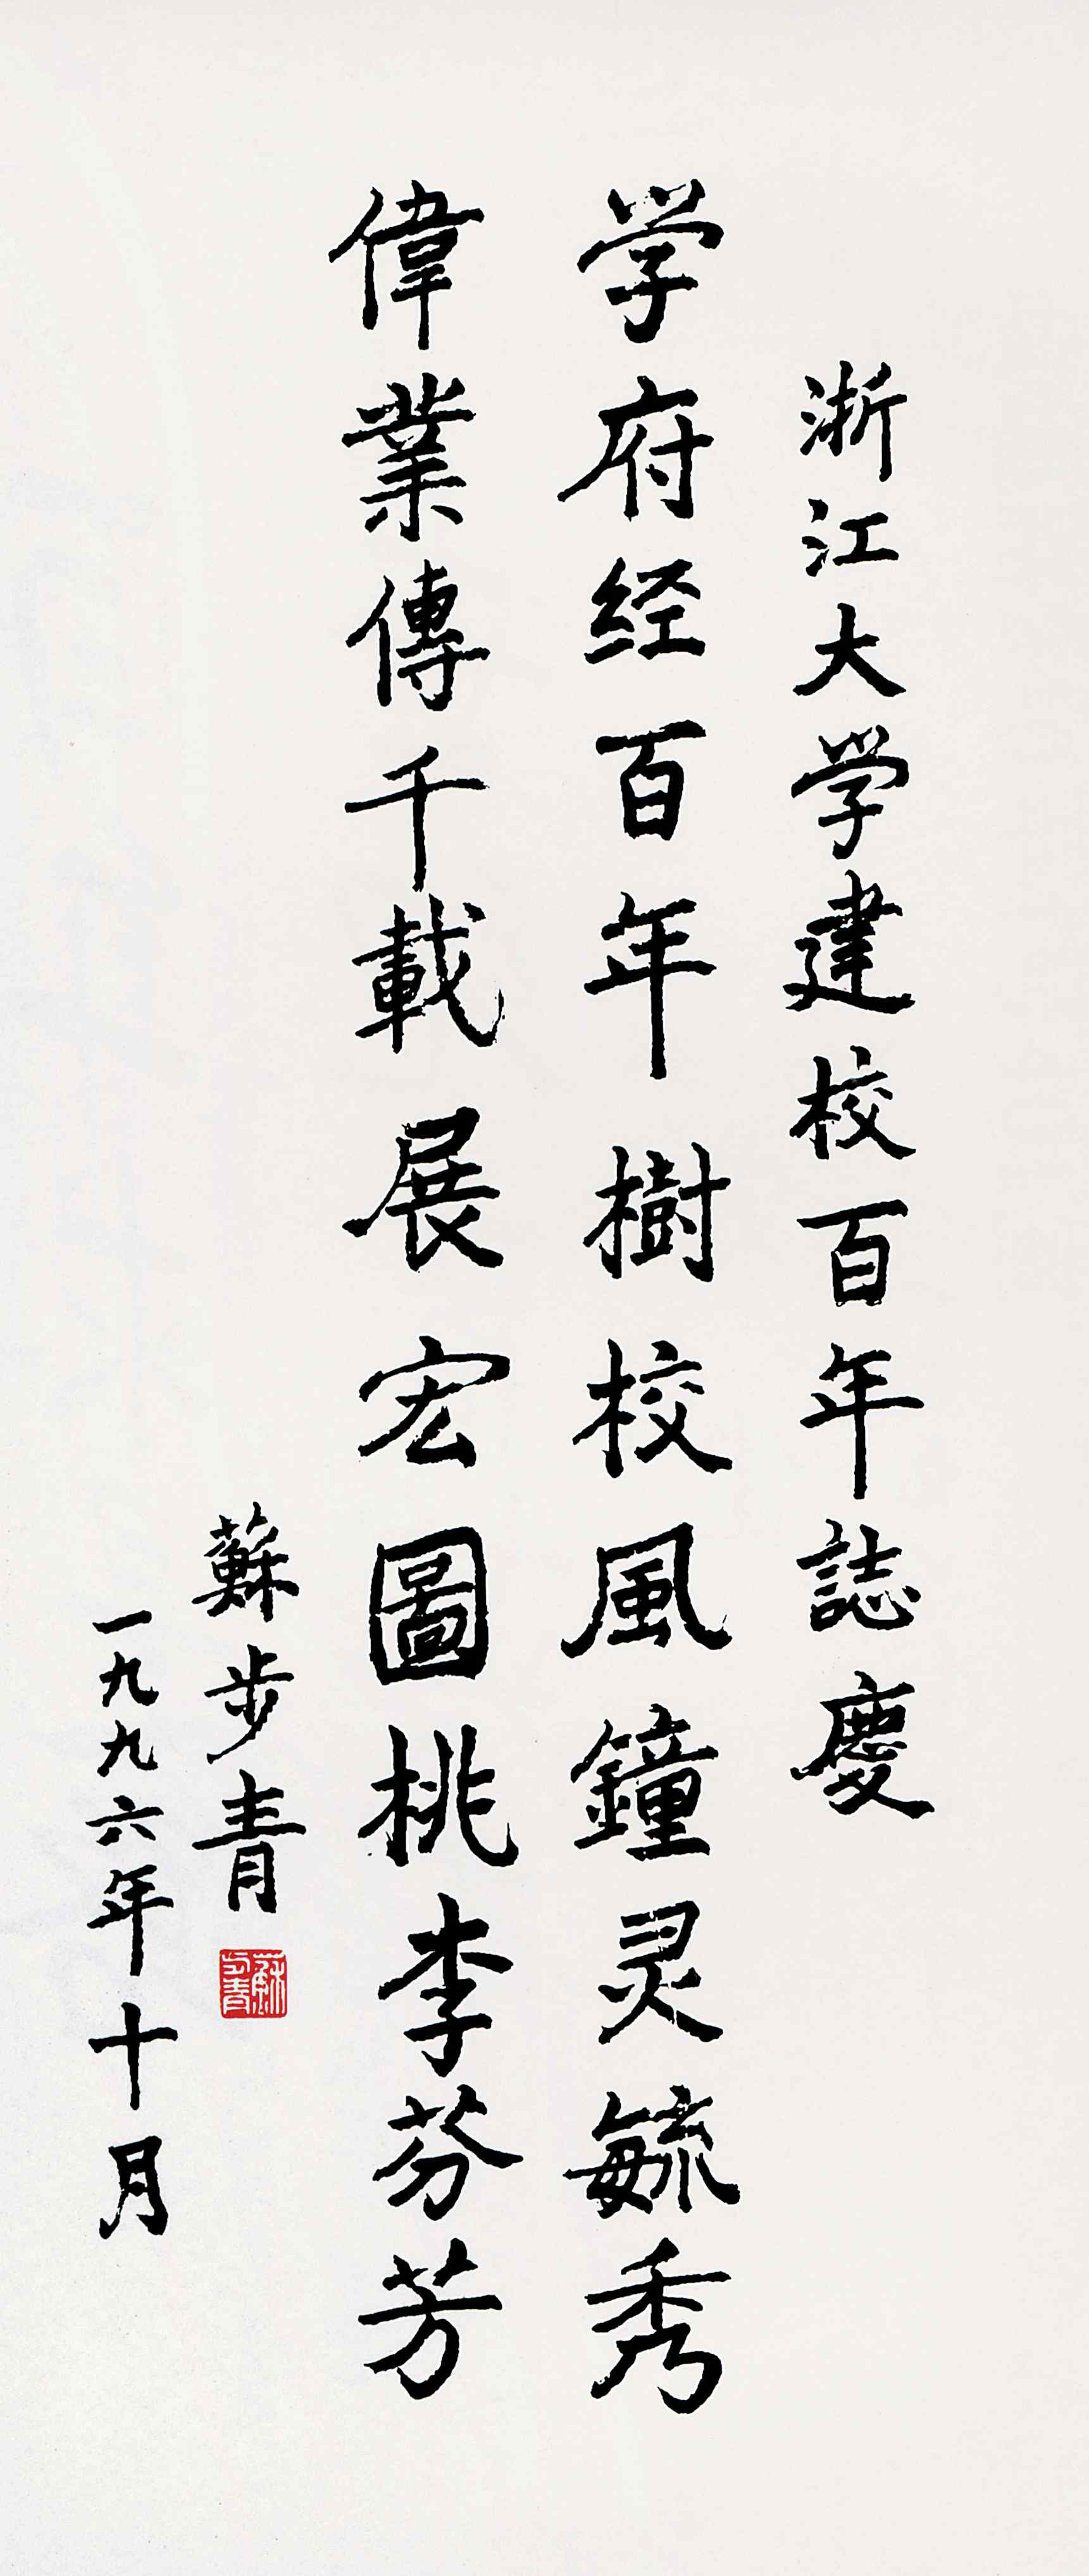 浙江大学建校百年誌慶
学府经百年樹校風鐘灵毓秀
偉業傳千載展宏圖桃李芬芳
蘇步青
蘇步青
一九九六年十月